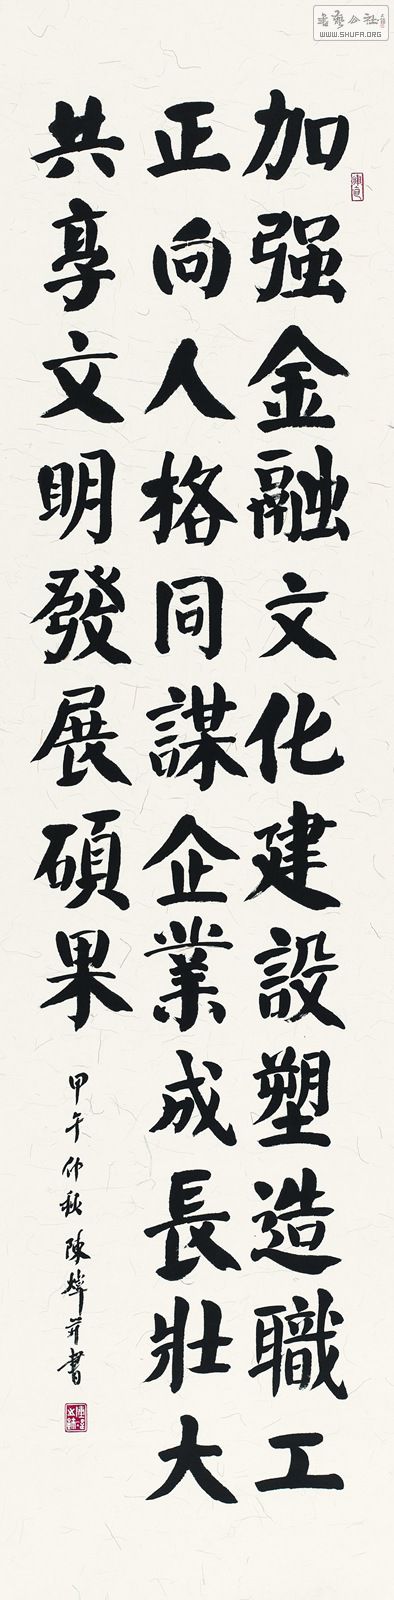 書藝公社
WWW.SHUFA.ORG
加强金融文化建設塑造職工
正向人格同謀企業成長壯大
共享文明發展碩果
甲午仲秋陳書